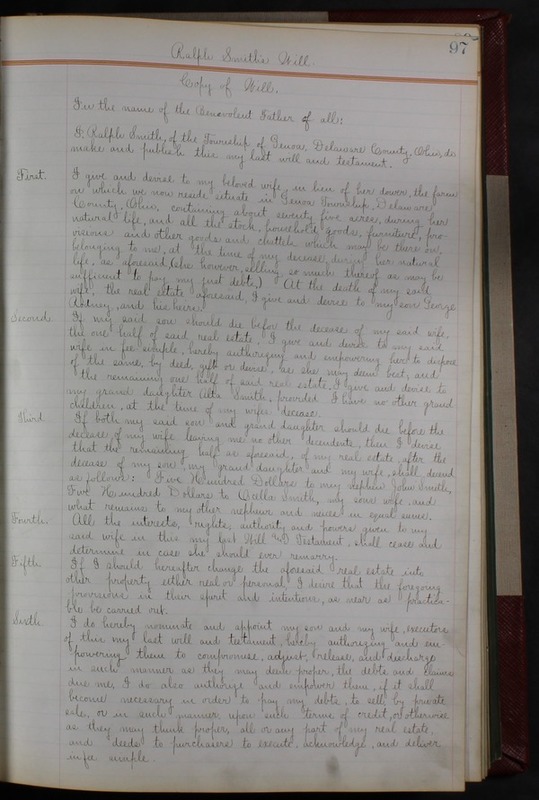 97
Ralph Smith's Will.
Copy of Will.
In the name of the Benevolent Father of all:
I, Ralph Smith, of the Township of Genoa, Delaware County, Ohio, do
make and publish this my last will and testament.
First. I give and devise to my beloved wife, in lieu of her dower, the farm
on which we now reside situate in Genoa Township, Delaware
County, Ohio, containing about seventy five acres, during her
natural life, and all the stock, household goods, furniture, pro-
visions and other goods and chattels which may be there on,
belonging to me, at the time of my decease, during her natural
life, as aforesaid, (she however, selling so much thereof as may be
sufficient to pay my just debts.) At the death of my said
wife, the real estate aforesaid, I give and devise to my son George
and his heirs.
Second. If my said son should die before the decease of my said wife,
the one half of said real estate, I give and devise to my said
wife in fee simple, hereby authorizing and empowering her to dispose
of the same, by deed, gift or devise, as she may deem best, and
the remaining one half of said real estate, I give and devise to
my grand daughter Smith, provided I have no other grand
children, at the time of my wifes decease.
Third. If both my said son and grand daughter should die before the
decease of my wife leaving me no other decendents, then I desire
that the remaining half as aforesaid, of my real estate, after the
decease of my son, my grand daughter and my wife, shall decend
as follows: Five Hundred Dollars to my nephew John Smith,
Five Hundred Dollars to Smith, my sons wife, and
what remains to my other nephews and nieces in equal shares.
Fourth. All the interests, rights, authority and powers given to my
said wife in this my last Will and Testament, shall cease and
determine in case she should ever remarry.
Fifth. If I should hereafter change the aforesaid real estate into
other property either real or personal, I desire that the foregoing
provisions in their spirit and intentions, as near as practica-
ble be carried out.
Sixth. I do hereby nominate and appoint my son and my wife, executors
of this my last will and testament, hereby authorizing and em-
powering them to compromise, adjust, release, and discharge
in such manner as they may deem proper, the debts and claims
due me, I do also authorize and empower them, if it shall
become necessary in order to pay my debts, to sell by private
sale, or in such manner upon such terms of credit, or otherwise
as they may think proper, all or any part of my real estate,
and deeds to purchasers to execute, acknowledge, and deliver
in fee simple.